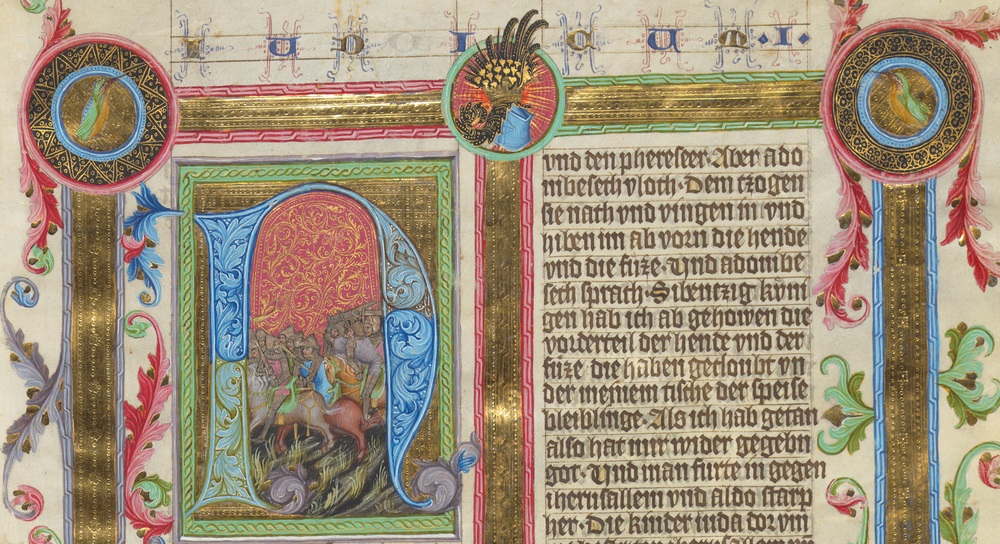 Iudicum.I.
vnd den phereseer. Aber ado
nibesech vloch. Dem czogen
sie nach vnd vingen in vnd
hiben im ab vorn die hende
vnd die fuze. Vnd adonibe
sech sprach. Sibenczig kuni
gen hab ich ab gehowen die
vorderteil der hende vnd der
fuze die haben gecloubt vn
der meinem tische der speise
bleiblinge. Als ich hab getan
also hat mir wider gegebn
got. Vnd man furte in gegen
iherusallem vnd aldo starp
her. Die kinder iuda dor vm